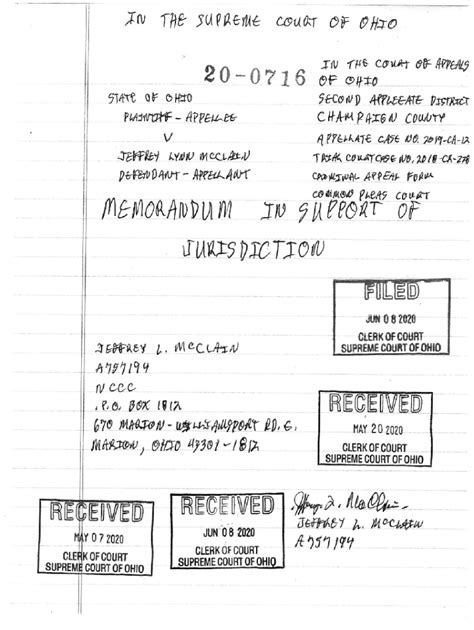 IN THE SUPREME COURT OF OHIO
20-0716
IN THE COURT OF APPEALS
OF OHIO
STATE OF OHIO
SECOND APPLEGATE DISTRICT
PLAINTIFF - APPELLEE
CHAMPAIGN COUNTY
V
APPELLATE CASE NO. 2019-CA-12
JEFFREY LYNN MCCLAIN
TRIAL COURT CASE NO. 2018-CR-278
DEFENDANT - APPELLANT
CRIMINAL APPEAL FROM
COMMON PLEAS COURT
MEMORANDUM IN SUPPORT OF
JURISDICTION
FILED
JUN 08 2020
CLERK OF COURT
SUPREME COURT OF OHIO
JEFFREY L. MCCLAIN
A757194
NCCC
P.O. BOX 1812
670 MARION - WILLIAMSPORT RD. E.
MARION, OHIO 43301-1812
RECEIVED
MAY 20 2020
CLERK OF COURT
SUPREME COURT OF OHIO
RECEIVED
MAY 07 2020
CLERK OF COURT
SUPREME COURT OF OHIO
RECEIVED
JUN 08 2020
CLERK OF COURT
SUPREME COURT OF OHIO
JEFFREY L. MCCLAIN
A757194